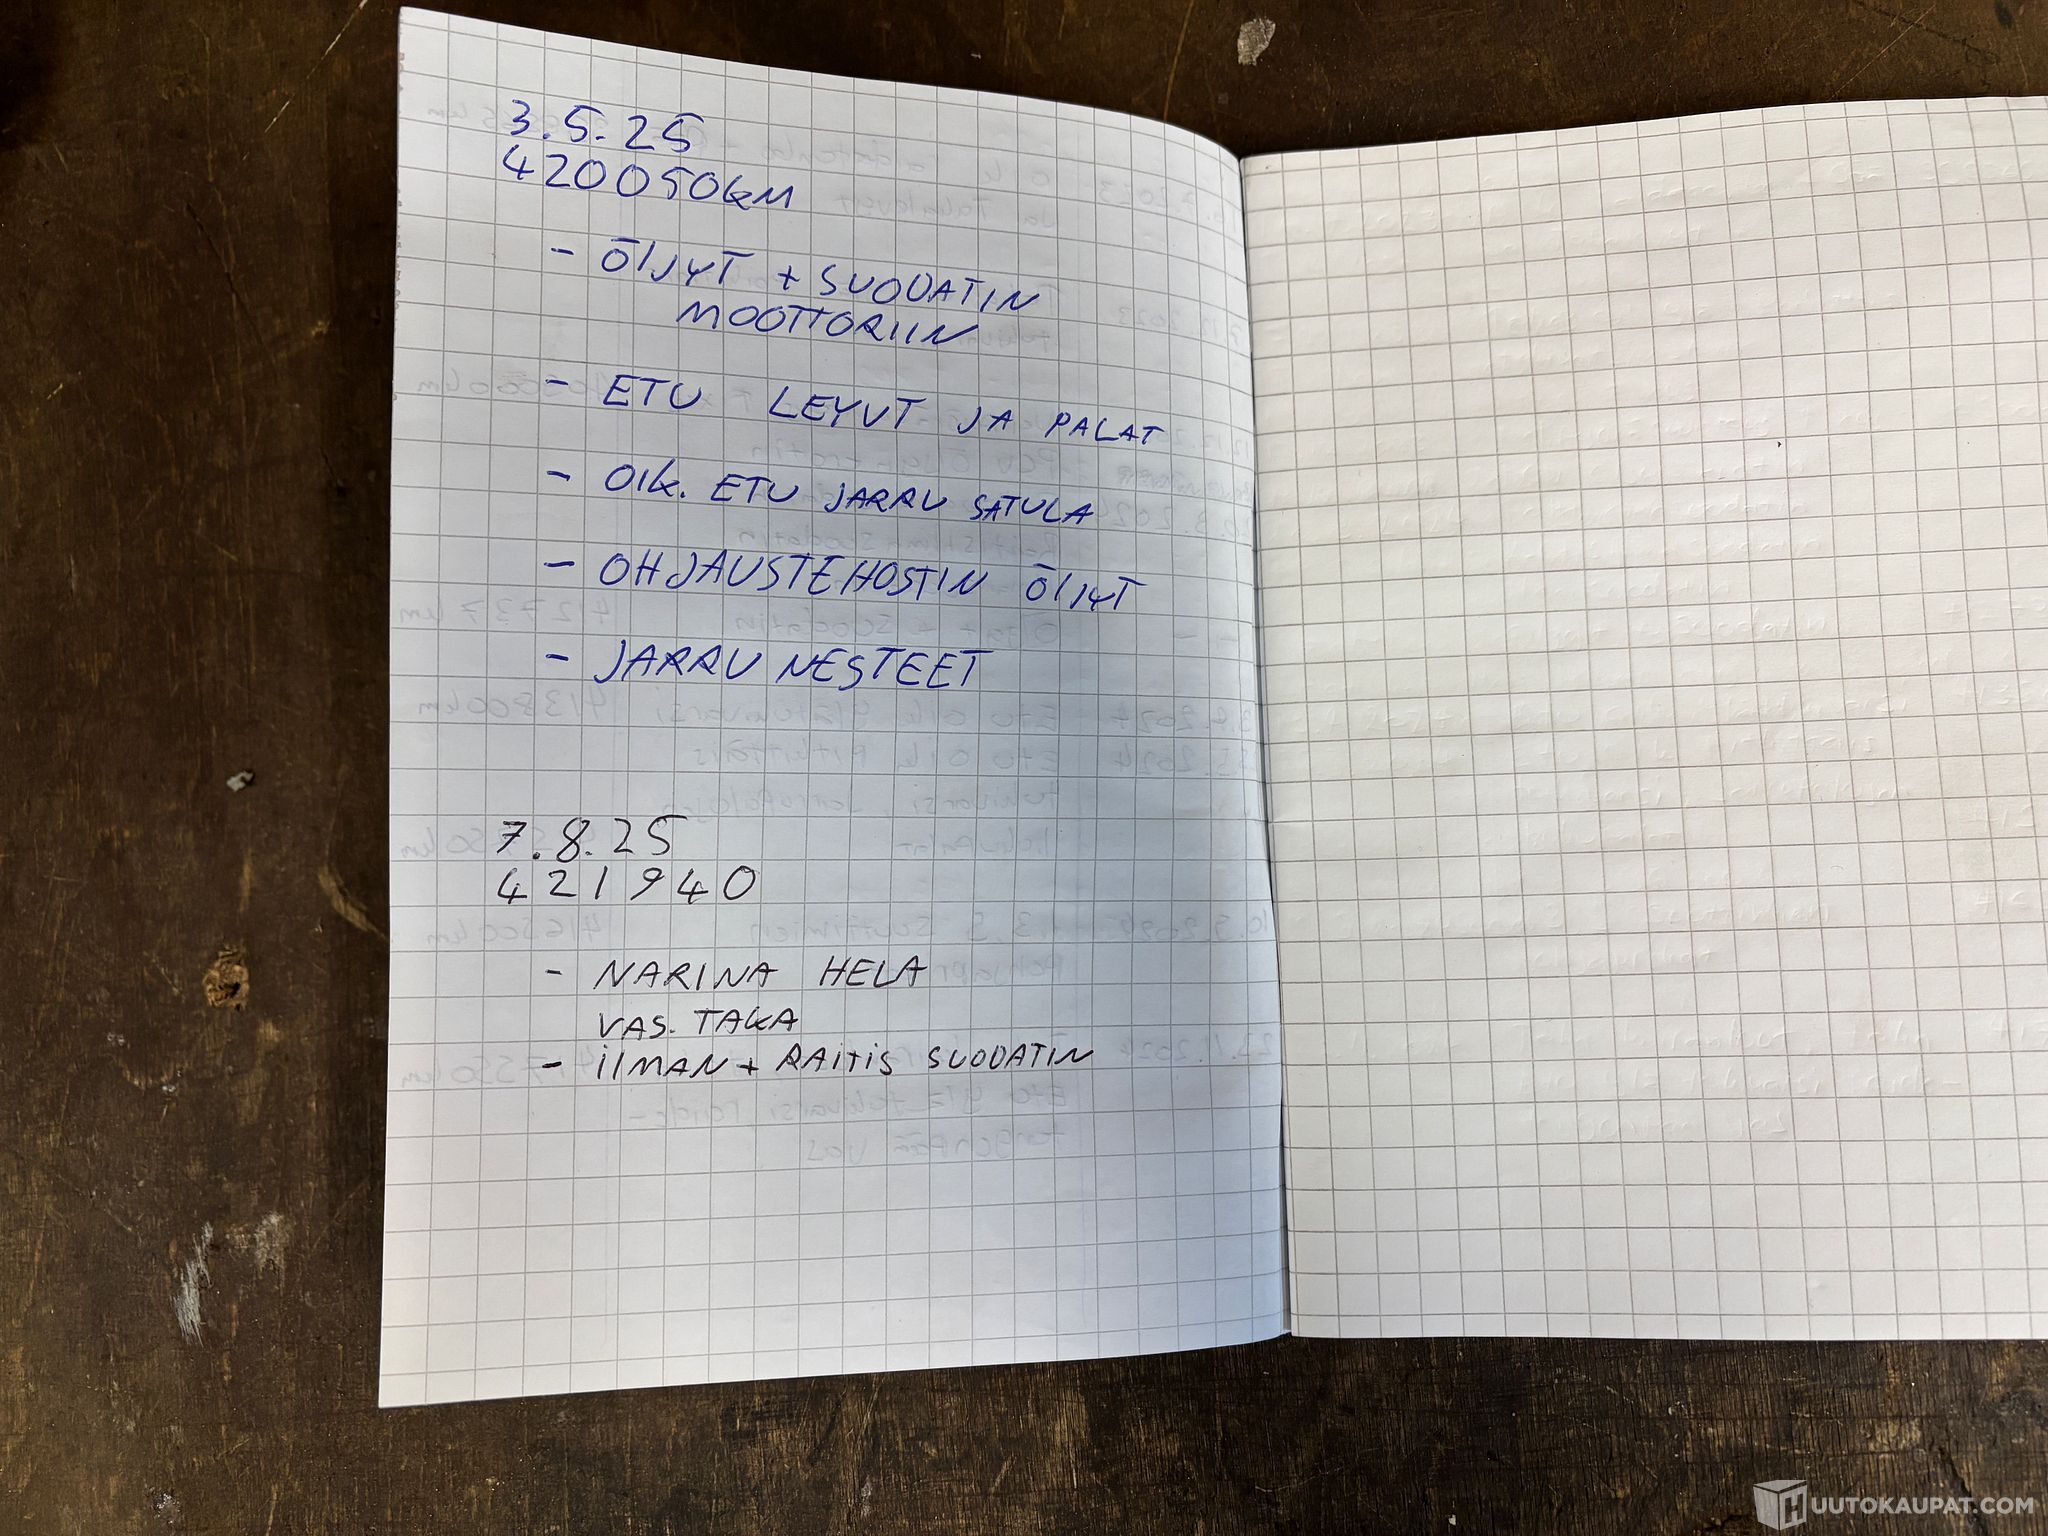 3.5.25
420050km
- ÖLJYT + SUODATIN
MOOTTORIIN
- ETU LEVYT JA PALAT
- OIK. ETU JARRU SATULA
- OHJAUSTEHOSTIN ÖLJYT
- JARRU NESTEET
7.8.25
421940
- NARINA HELA
VAS. TAKA
- iLMAN + RAiTiS SUODATIN
HUUTOKAUPAT.COM